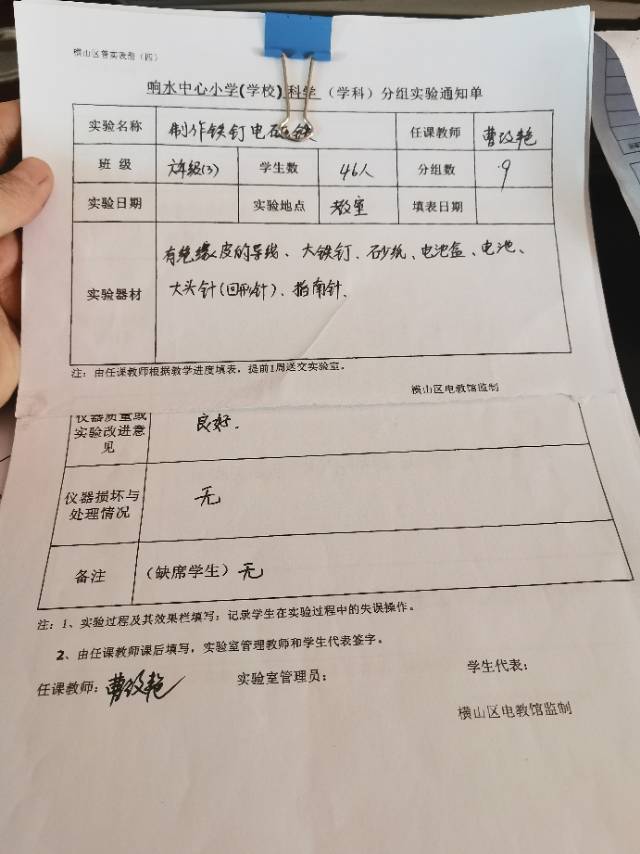 横山区普实表册（四）
响水中心小学(学校)科学（学科）分组实验通知单
实验名称 制作铁钉电磁铁 任课教师 曹 艳
班 级 六年级(3) 学生数 46人 分组数 9
实验日期 实验地点 教室 填表日期
实验器材 有绝缘皮的导线、大铁钉、砂纸、电池盒、电池、
大头针(回形针)、指南针.
注：由任课教师根据教学进度填表，提前1周送交实验室。
横山区电教馆监制
仪器质量或
实验改进意
见
良好.
仪器损坏与
处理情况
无
备注 （缺席学生）无
注：1、实验过程及其效果栏填写：记录学生在实验过程中的失误操作。
2、由任课教师课后填写，实验室管理教师和学生代表签字。
任课教师：曹 艳 实验室管理员： 学生代表：
横山区电教馆监制